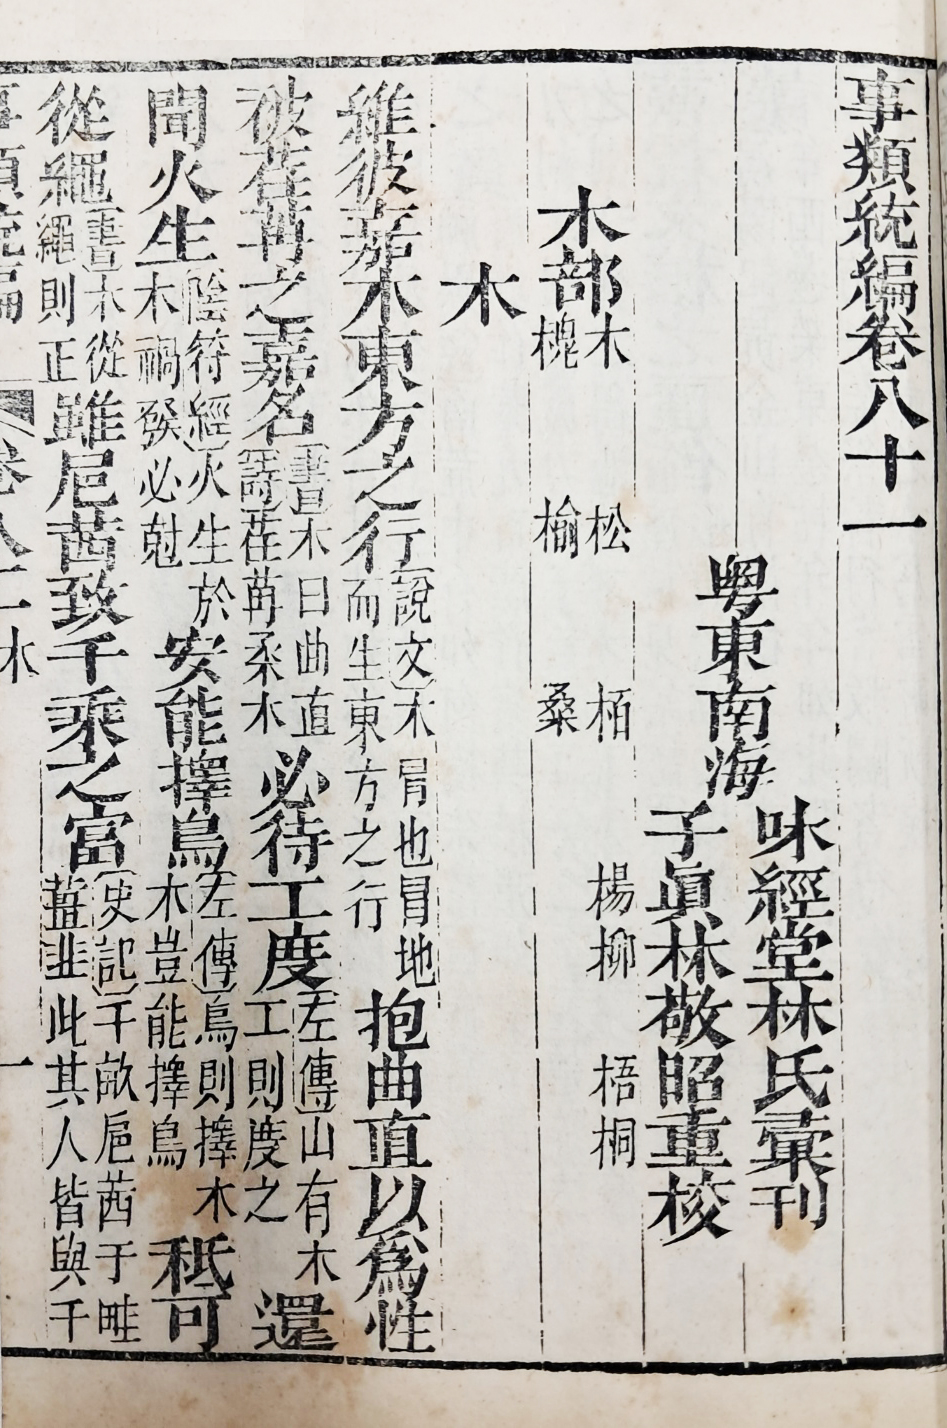 事類統編卷八十一
粵東南海
味經堂林氏彙刊
子眞林敬昭重校
木部
木 松 栢 楊柳 梧桐
槐 榆 桑
木
維彼嘉木東方之行
說文木冒也冒地
而生東方之行
抱曲直以爲性
彼荏苒之嘉名
書木曰曲直
詩荏苒柔木
必待工度
左傳山有木
工則度之
還
聞火生
陰符經火生於
木禍發必尅
安能擇鳥
左傳鳥則擇木
木豈能擇鳥
秪可
從繩
書木從
繩則正
雖巵茜致千乘之富
史記千畝巵茜千畦
薑韭此其人皆與千
事類統編 卷八十一 木 一